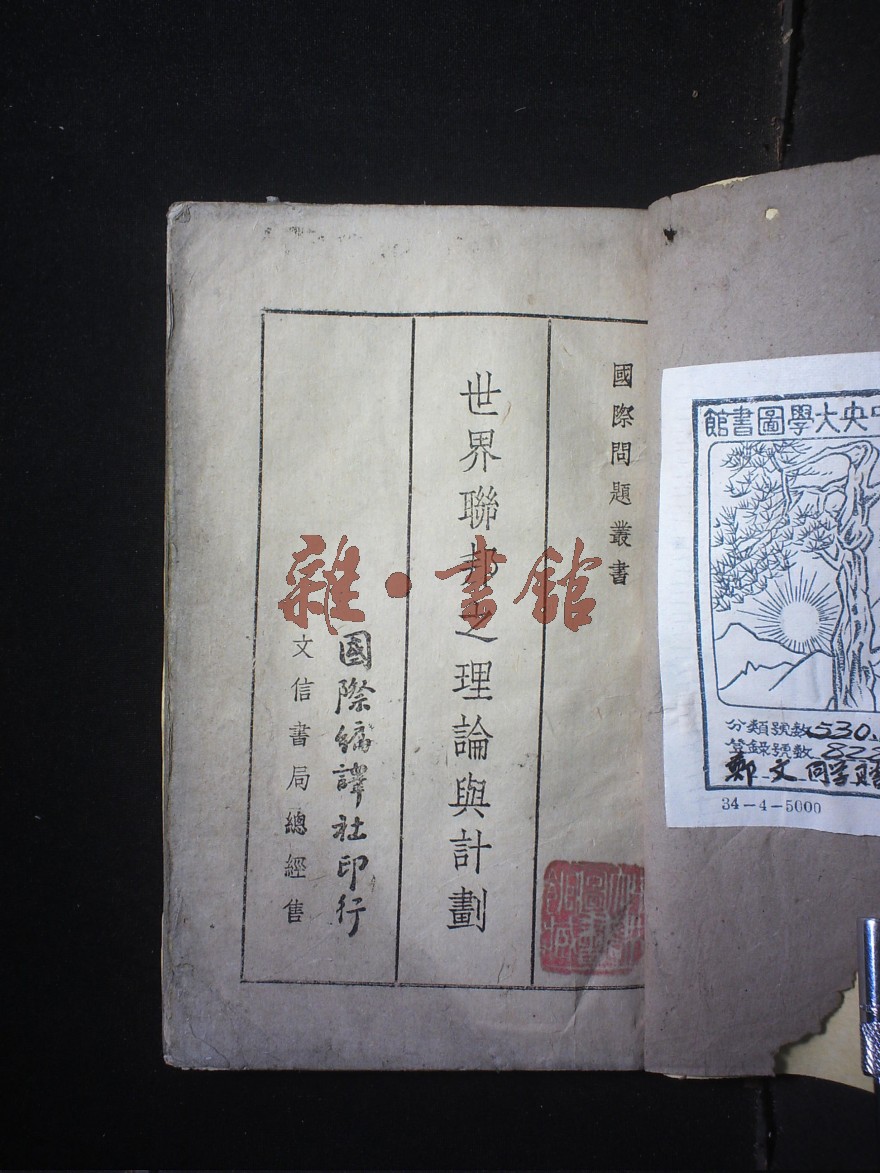 國際問題叢書
世界聯邦之理論與計劃
國際編譯社印行
文信書局總經售
雜·書館
央大學圖書館
分類號數530.
登錄號數82
鄭文同学
34-4-5000